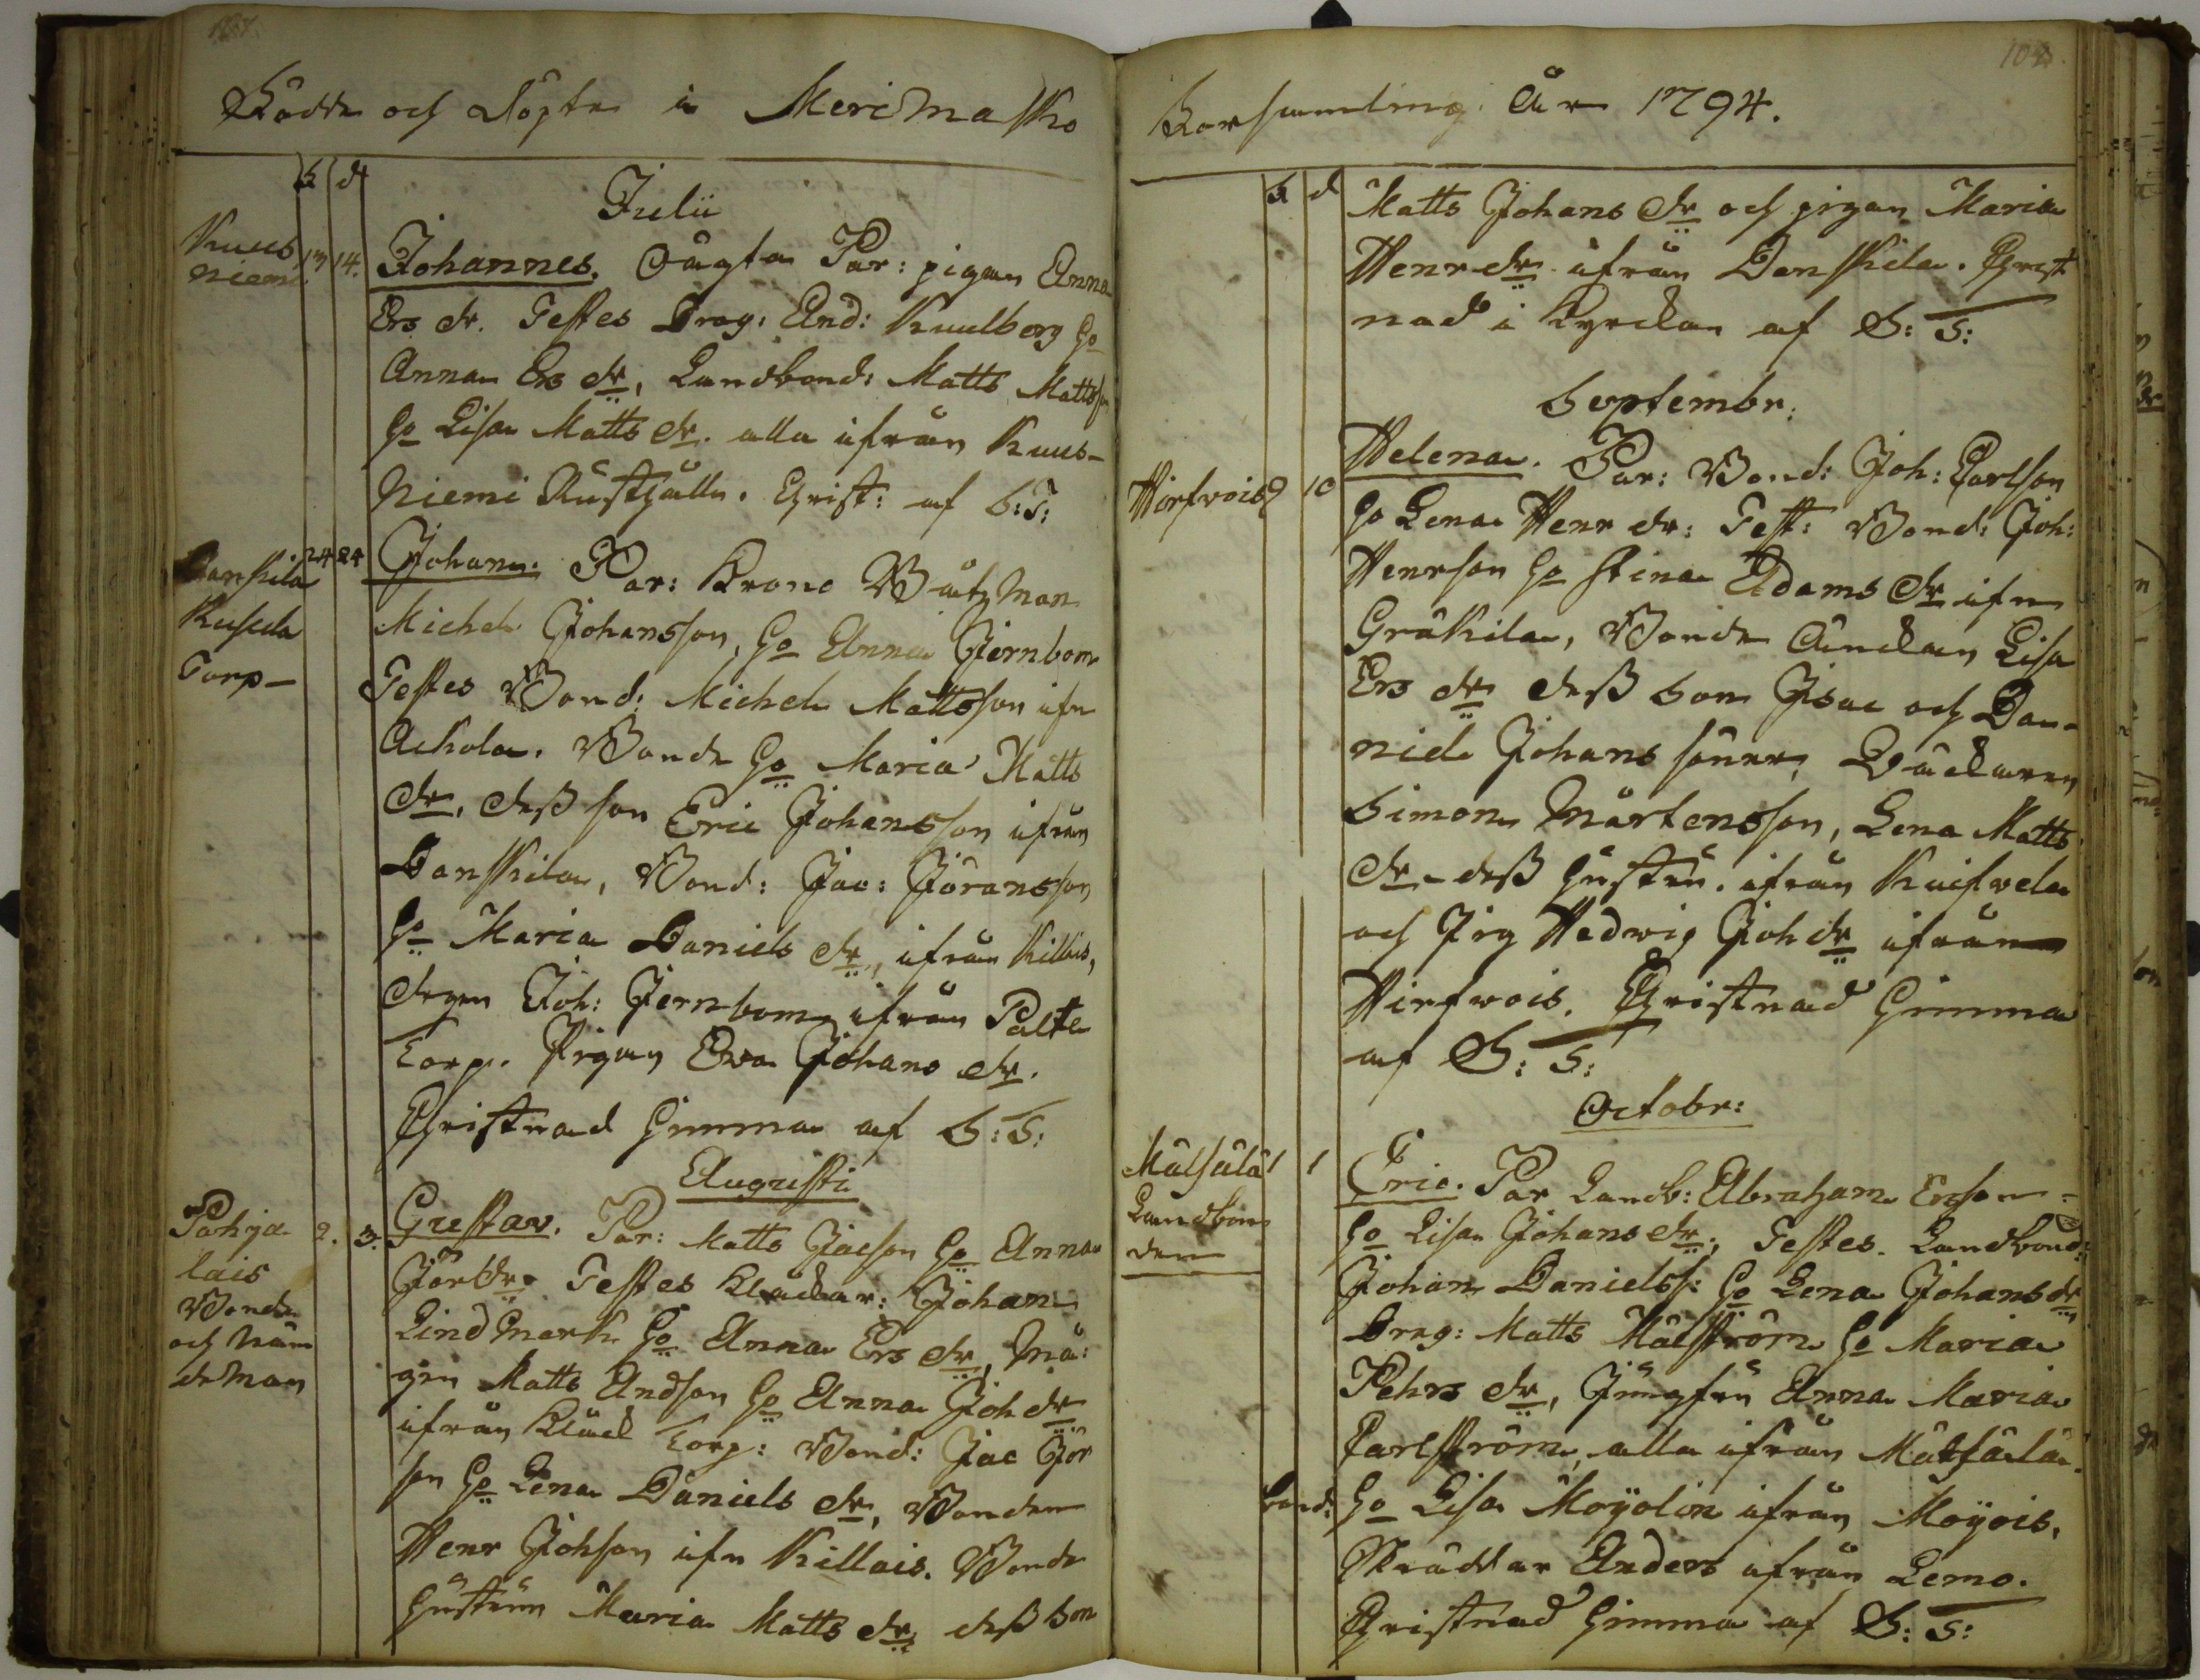 Födde och Döpte i Merimasko
f d
Julii
Kuus
niemi
13 14.
Johannes. Oägta Par: pigan Anna
Ers dr. Testes Drag: And: Kuulberg Ho
Anna Ers dr, Landbond: Matts Mattss
Ho Lisa Matts dr. alla ifrån Kuus-
niemi Rusthålle. Christ: af S:S:
Danskila
Kuseela
Torp-
24 24
Johan. Par: Krono Båtzman
Michel Johansson, Ho Anna Jernbom
Testes Bond: Michel Mattsson ifn
Ackola. Bonde Ho Maria Matts
dr, dess son Eric Johansson ifrån
Danskila, Bond: Jac: Jöransson
Ho Maria Daniels dr, ifrån Killais,
drgen Joh: Jernbom ifrån Palte
Torp. Pigan Ewa Johans dr.
Christnad hemma af S:S:
Augusti
Pohja
lais
Bonde
och Näm
deman
2. 3.
Gustav. Par: Matts Jacson Ho Anna
Jör dr. Testes Klåckar: Johan
Lindmark Ho Anna Ers dr, Må:
gen Matts Andson Ho Anna Joh dr
ifrån Klåck Torp: Bond: Jac Jör
son Ho Lena Daniels dr, Bonden
Henr Johson ifn Killais. Bonde
hustrun Maria Matts dr, dess son
Forsamling År 1794.
f d
Matts Johans dr och pigan Maria
Henr dr ifrån Danskila. Christ
nad i Kyrckan af S: S:
Septembr:
Hirfvois
9 10
Helena. Par: Bond: Joh: Carlson
Ho Lena Henr dr: Test: Bond: Joh:
Henrson Ho Stina Adams dr ifn
Gråkila, Bonde Änckan Lisa
Ers dr dess son Isac och Da-
niel Johans söner,
Simon Mårtensson, Lena Matts
dr dess hustru. ifrån Kaifvela
och Pig Hedwig Joh dr ifrån
Hirfwois. Christnad hemma
af S: S:
Octobr:
Mälsälä
Landbon
den
1 1
Eric. Par Landb: Abraham Erson
Ho Lisa Johans dr; Testes. Landbond:
Johan Danielss: Ho Lena Johans dr
Drag: Matts Mälström Ho Maria
Pehrs dr, Jungfru Anna Maria
Carlström, alla ifrån Mälsälä.
bond: Ho Lisa Moÿolin ifrån Moÿois,
Skräddar Anders ifrån Lemo.
Christnad hemma af S: S: